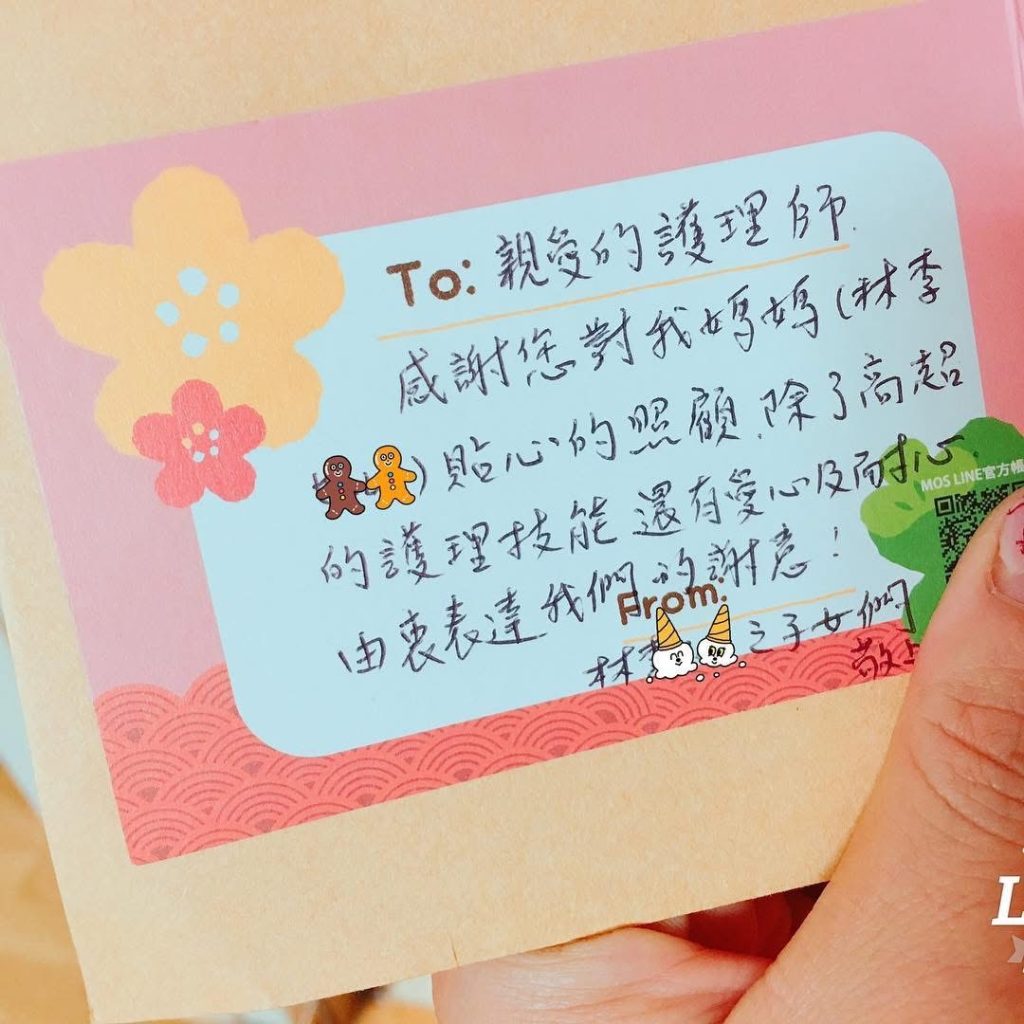 To: 親愛的護理師.
感謝您對我媽媽(林李
)貼心的照顧.除了高超
的護理技能還有愛心及耐心
由衷表達我們的謝意!
From:
林 之子女們
敬上
MOS LINE官方帳
L